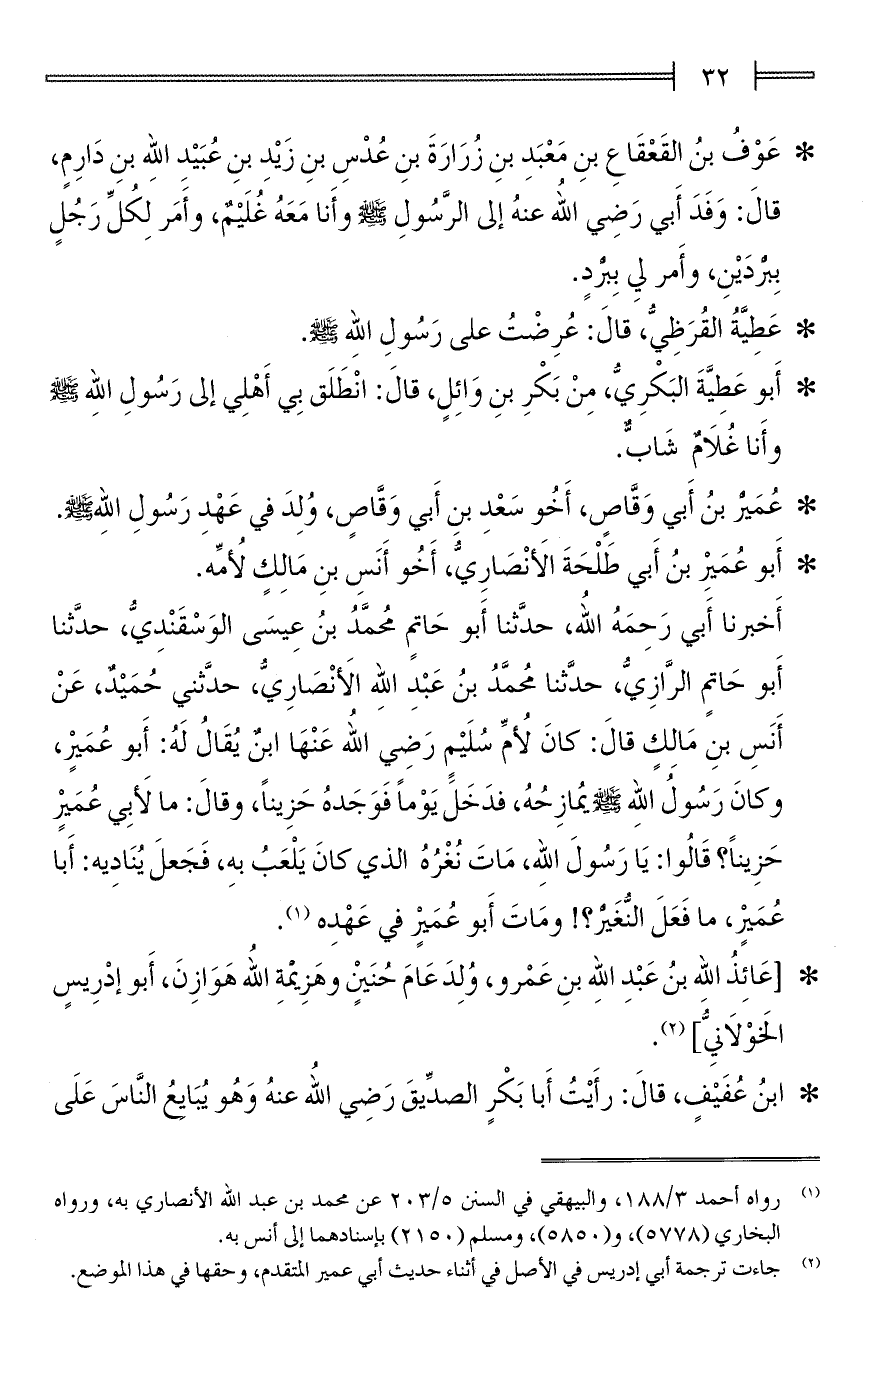 ٣٢
* عَوْفُ بنُ القَعْقَاعِ بنِ مَعْبَدِ بنِ زُرَارَةَ بنِ عُدْسِ بنِ زَيْدِ بنِ عُبَيْدِ اللهِ بنِ دَارِمٍ،
قالَ: وَفَدَ أَبي رَضِي اللهُ عنهُ إلى الرَّسُولِ ﷺ وأَنا مَعَهُ غُلَيْمٌ، وأَمَر لِكُلِّ رَجُلٍ
بِبُرْدَيْنِ، وأَمر لي بِبُرْدٍ.
* عَطِيَّةُ القُرَظِيُّ، قالَ: عُرِضْتُ على رَسُولِ اللهِ ﷺ.
* أَبو عَطِيَّةَ البَكْرِيُّ، مِنْ بَكْرِ بنِ وَائِلٍ، قالَ: انْطَلَق بِي أَهْلِي إلى رَسُولِ اللهِ ﷺ
وأَنا غُلَامٌ شَابٌّ.
* عُمَيْرُ بنُ أَبي وَقَّاصٍ، أَخُو سَعْدِ بنِ أَبي وَقَّاصٍ، وُلِدَ في عَهْدِ رَسُولِ اللهِ ﷺ.
* أَبو عُمَيْرْ بنُ أَبي طَلْحَةَ الأَنْصَارِيُّ، أَخُو أَنَسِ بنِ مَالِكٍ لأُمِّه.
أَخبرنا أَبي رَحِمَهُ اللهُ، حدَّثنا أَبو حَاتمٍ مُحمَّدُ بنُ عِيسَى الوَسْقَنْدِيُّ، حدَّثنا
أَبو حَاتمٍ الرَّازِيُّ، حدَّثنا مُحمَّدُ بنُ عَبْدِ اللهِ الأَنْصَارِيُّ، حدَّثني حُمَيْدٌ، عَنْ
أَنَسِ بنِ مَالِكٍ قالَ: كانَ لأُمِّ سُلَيْمٍ رَضِي اللهُ عَنْهَا ابنٌ يُقَالُ لَهُ: أَبو عُمَيْرٍ،
وكانَ رَسُولُ اللهِ ﷺ يُمَازِحُهُ، فدَخَلَ يَوْماً فَوَجَدهُ حَزِيناً، وقالَ: ما لأَبي عُمَيْرٍ
حَزِيناً؟ قَالُوا: يَا رَسُولَ اللهِ، مَاتَ نُغْرُهُ الذي كانَ يَلْعَبُ به، فَجَعلَ يُنَادِيه: أَبا
عُمَيْرْ، ما فَعَلَ النُّغَيْرُ؟! ومَاتَ أَبو عُمَيْرٍ في عَهْدِه (١).
* [عَائِذُ اللهِ بنُ عَبْدِ اللهِ بنِ عَمْرو، وُلِدَ عَامَ حُنَيْنٍ وهَزِيْمةِ اللهُ هَوَازِنَ، أَبو إدْرِيسٍ
الخَوْلَانِيُّ] (٢).
* ابنُ عُفَيْفٍ، قالَ: رأَيْتُ أَبا بَكْرٍ الصدِّيقَ رَضِي اللهُ عنهُ وَهُو يُبَايِعُ النَّاسَ عَلَى
(١) رواه أحمد ١٨٨/٣، والبيهقي في السنن ٢٠٣/٥ عن محمد بن عبد الله الأنصاري به، ورواه
البخاري (٥٧٧٨)، و(٥٨٥٠)، ومسلم (٢١٥٠) بإسنادهما إلى أنس به.
(٢) جاءت ترجمة أبي إدريس في الأصل في أثناء حديث أبي عمير المتقدم، وحقها في هذا الموضع.